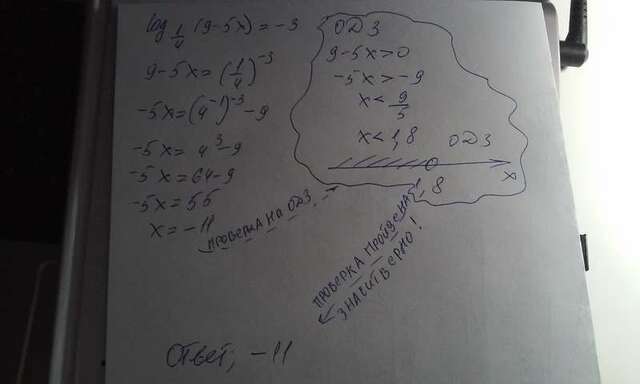 log 1/4 (9-5x) = -3
9-5x = (1/4)^-3
-5x = (4^-1)^-3 -9
-5x = 4^3 -9
-5x = 64-9
-5x = 55
x = -11
ПРОВЕРКА НА ОДЗ
ОДЗ
9-5x > 0
-5x > -9
x < 9/5
x < 1,8
ОДЗ
x
1,8
ПРОВЕРКА ПРОЙДЕНА
ЗНАЧИТ ВЕРНО!
Ответ; -11